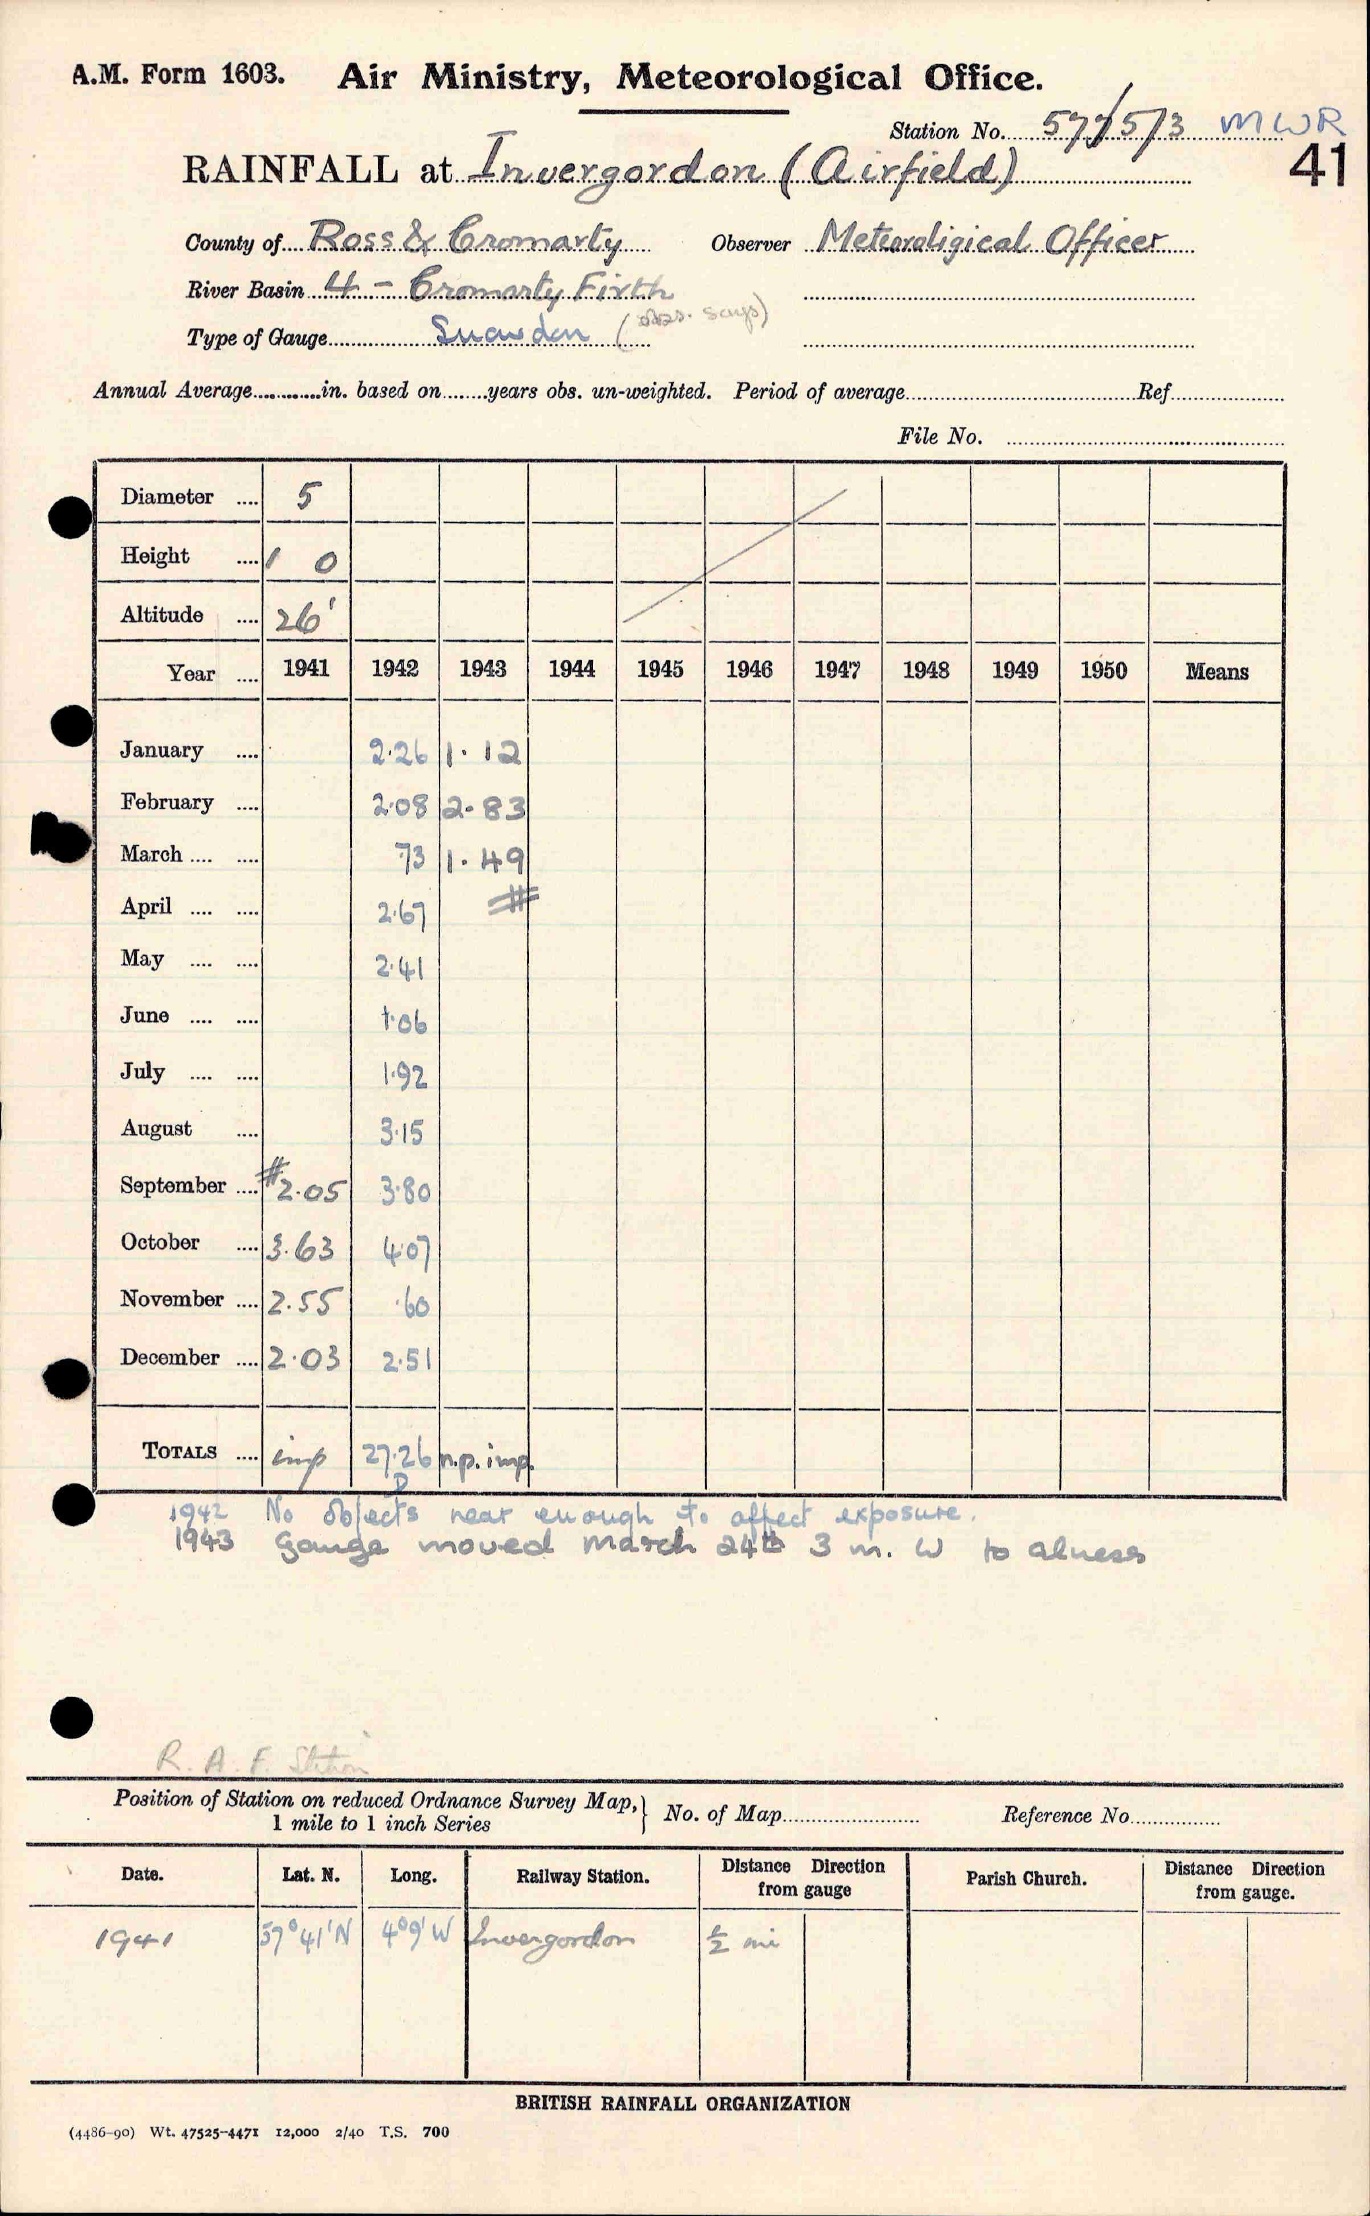 A.M. Form 1603. Air Ministry, Meteorological Office.
Station No. 577/5/3 MWR
41
RAINFALL at Invergordon (Airfield)
County of Ross & Cromarty Observer Meteoroligical Officer
River Basin 4 - Cromarty Firth
Type of Gauge Snowdon (obs. says)
Annual Average............in. based on........years obs. un-weighted. Period of average Ref
File No.
Diameter .... 5
Height .... 1 0
Altitude .... 26'
Year .... 1941 1942 1943 1944 1945 1946 1947 1948 1949 1950 Means
January .... 2.26 1.12
February .... 2.08 2.83
March .... .... .73 1.49
April .... .... 2.67 #
May .... .... 2.41
June .... .... 1.06
July .... .... 1.92
August .... 3.15
September .... #2.05 3.80
October .... 3.63 4.07
November .... 2.55 .60
December .... 2.03 2.51
TOTALS .... imp 27.26 n.p. imp.
D
1942 No objects near enough to affect exposure.
1943 Gauge moved March 24th 3 m. W to alness
R.A.F. Station
Position of Station on reduced Ordnance Survey Map, } No. of Map Reference No.
1 mile to 1 inch Series
Date. Lat. N. Long. Railway Station. Distance Direction from gauge Parish Church. Distance Direction from gauge.
1941 57°41'N 4°9'W Invergordon ½ mi
BRITISH RAINFALL ORGANIZATION
(4486-90) Wt. 47525-4471 12,000 2/40 T.S. 700